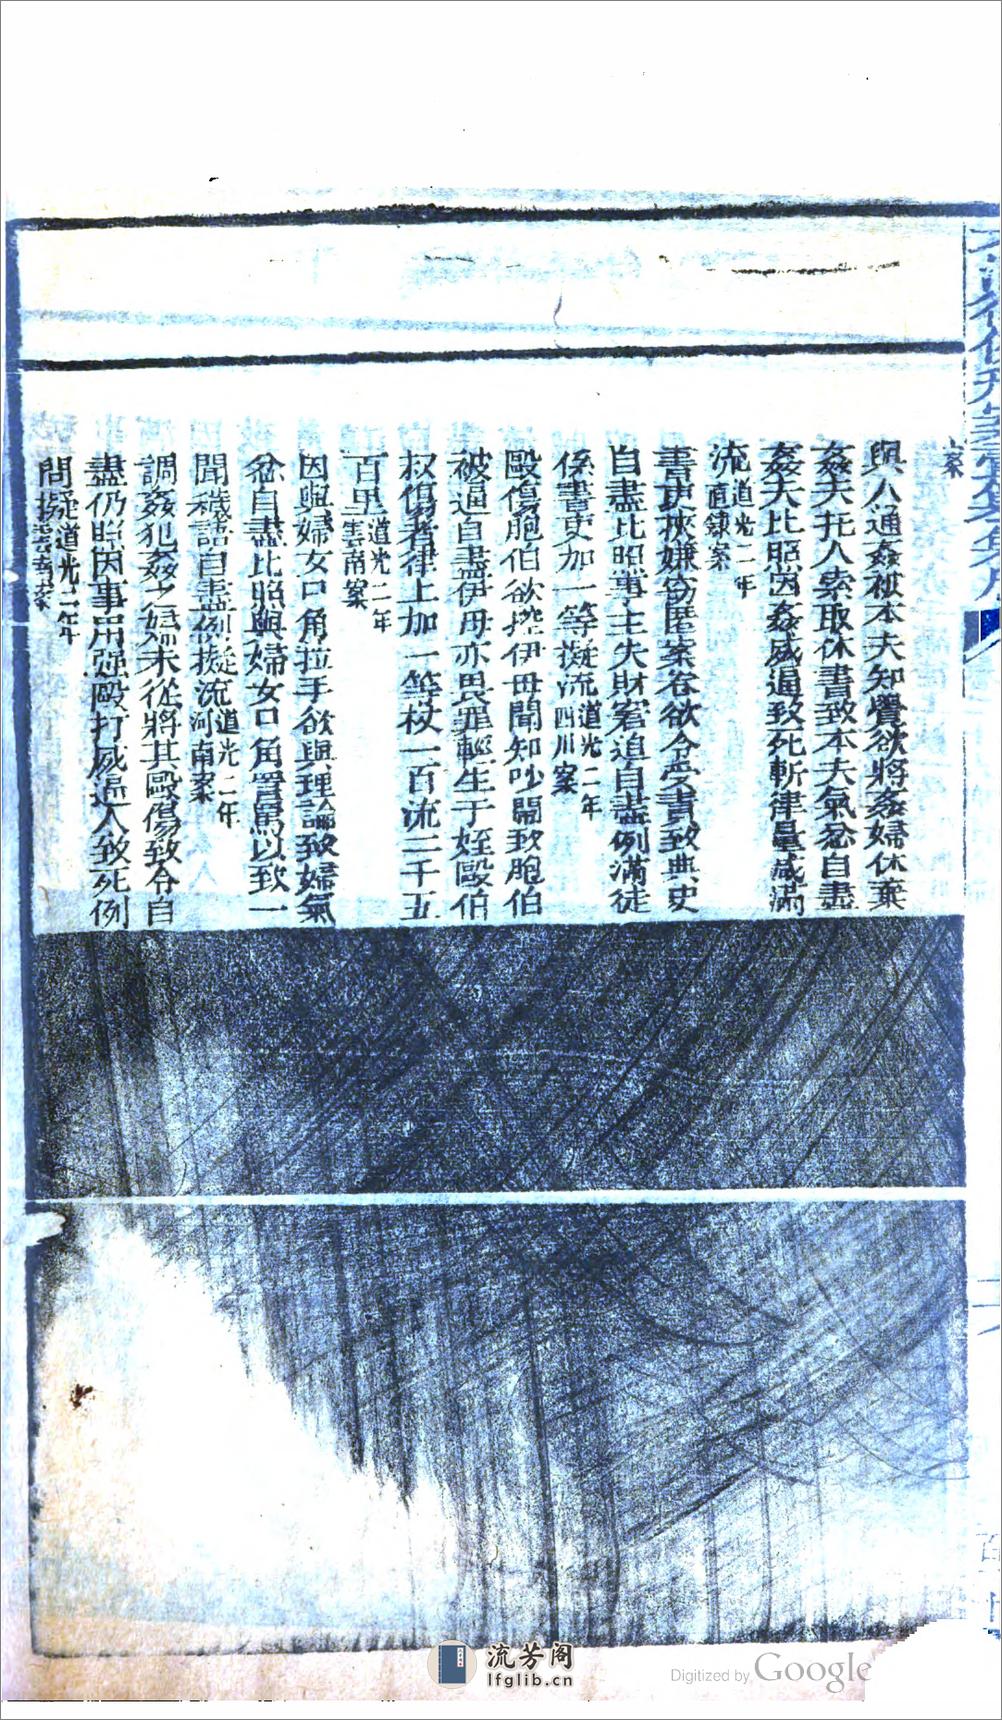 案
與人通姦被本夫知覺欲將姦婦休棄
姦夫托人索取休書致本夫氣忿自盡
姦夫比照因姦威逼致死斬律量減滿
流道光二年直隸案
書吏挾嫌窃匿案卷欲令受責致典史
自盡比照事主失財窘迫自盡例滿徒
係書吏加一等擬流道光二年四川案
毆傷胞伯欲控伊母聞知吵鬧致胞伯
被逼自盡伊母亦畏罪輕生于姪毆伯
叔傷者律上加一等杖一百流二千五
百里道光二年雲南案
因與婦女口角拉手欲與理論致婦氣
忿自盡比照與婦女口角詈罵以致一
聞穢語自盡例擬流道光二年河南案
調姦犯姦之婦未從將其毆傷致令自
盡仍照因事用強毆打威逼人致死例
問擬道光二年
流芳阁
lfglib.cn
Digitized by Google